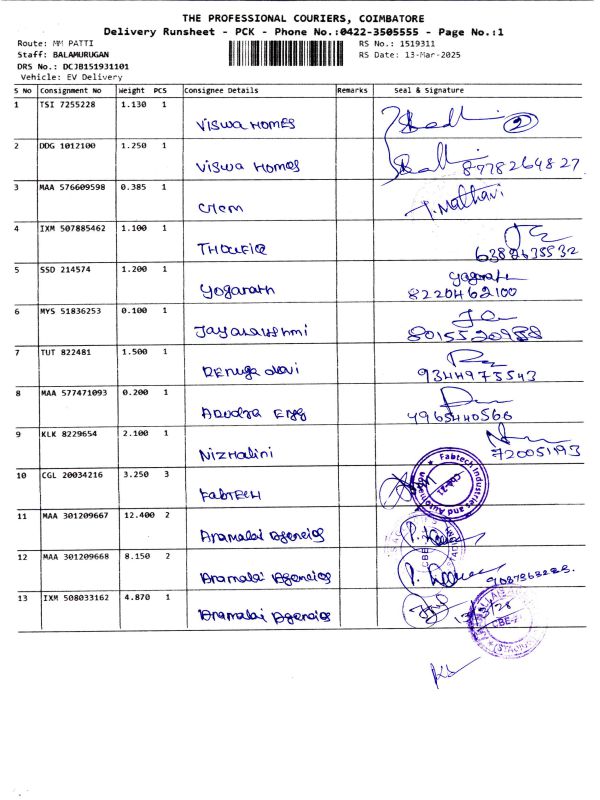 THE PROFESSIONAL COURIERS, COIMBATORE
Delivery Runsheet - PCK - Phone No.:0422-3505555 - Page No.:1
Route: MM PATTI RS No.: 1519311
Staff: BALAMURUGAN RS Date: 13-Mar-2025
DRS No.: DCJB151931101
Vehicle: EV Delivery
S No Consignment No Weight PCS Consignee Details Remarks Seal & Signature
1 TSI 7255228 1.130 1 Viswa Homes 2
2 DDG 1012100 1.250 1 Viswa Homes 8778264827
3 MAA 576609598 0.385 1 T. Mathavi
4 IXM 507885462 1.100 1 Thoufiq 6382635532
5 SSD 214574 1.200 1 Yogarath 8220462100
6 MYS 51836253 0.100 1 8015520988
7 TUT 822481 1.500 1 Renuga devi 9344975543
8 MAA 577471093 0.200 1 4965440566
9 KLK 8229654 2.100 1 Nizhalini
10 CGL 20034216 3.250 3 Fabtech Fabtech Industries and Automation
11 MAA 301209667 12.400 2 Aramalai Agencies
12 MAA 301209668 8.150 2 Aramalai Agencies
13 IXM 508033162 4.870 1 Aramalai Agencies